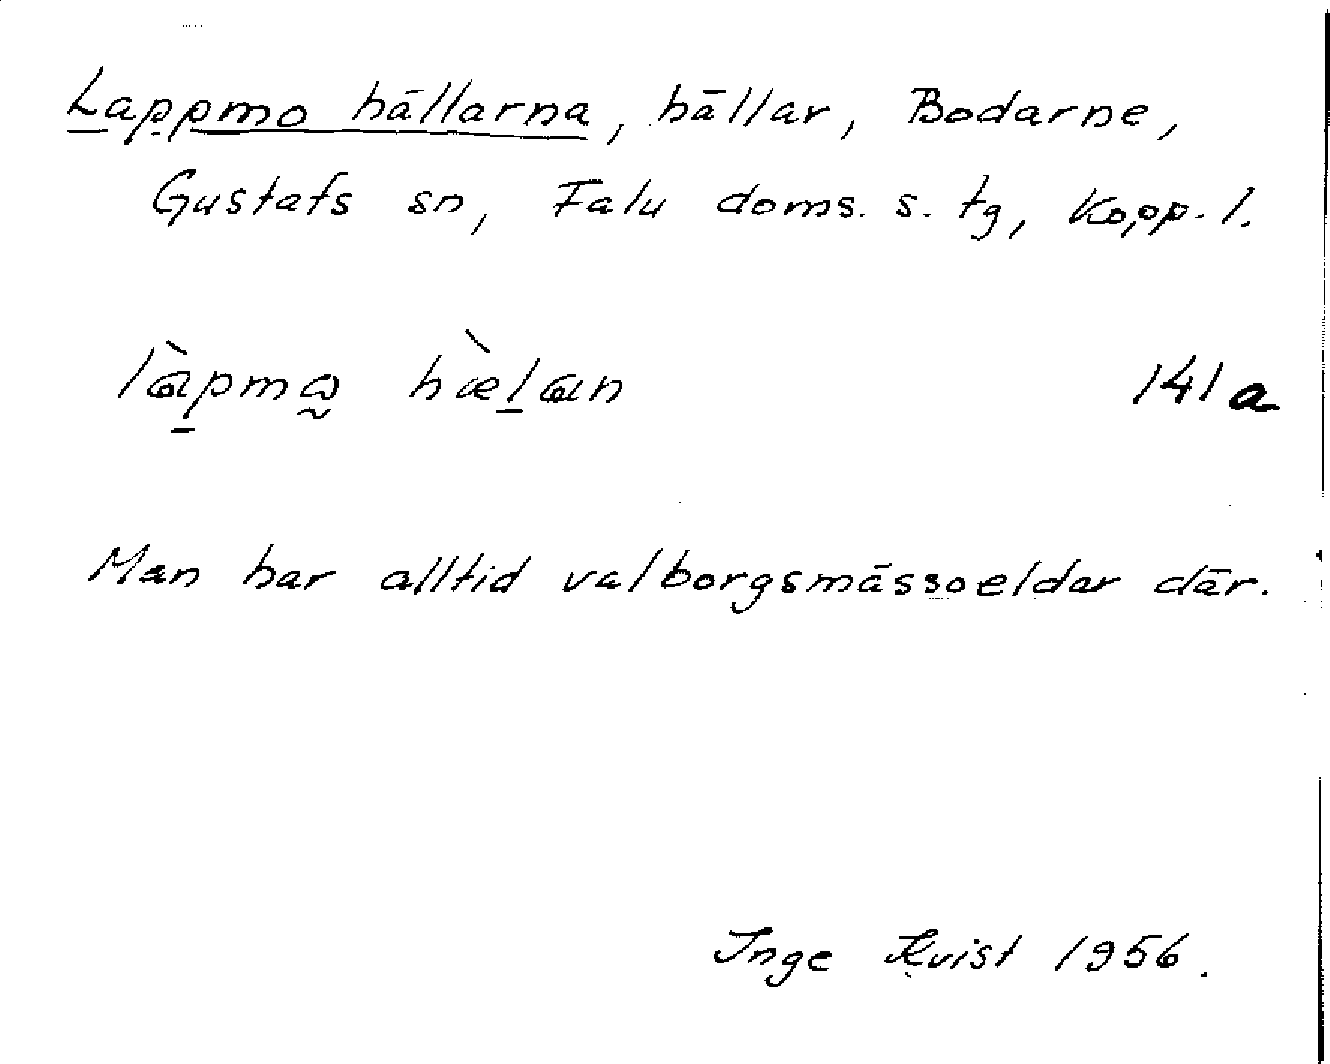 Lappmo hällarna, hällar, Bodarne,
Gustafs sn, Falu doms. s. tg, Kopp. l.
lɑ̀p̠mɷ̰ hæ̀l̠ɑn 141a
Man har alltid valborgsmässoeldar där.
Inge Kvist 1956.